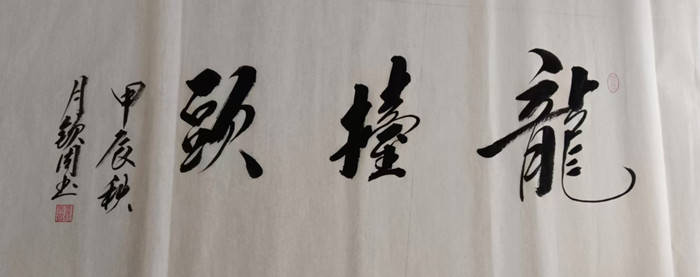 龍擡頭
甲辰秋
月周书